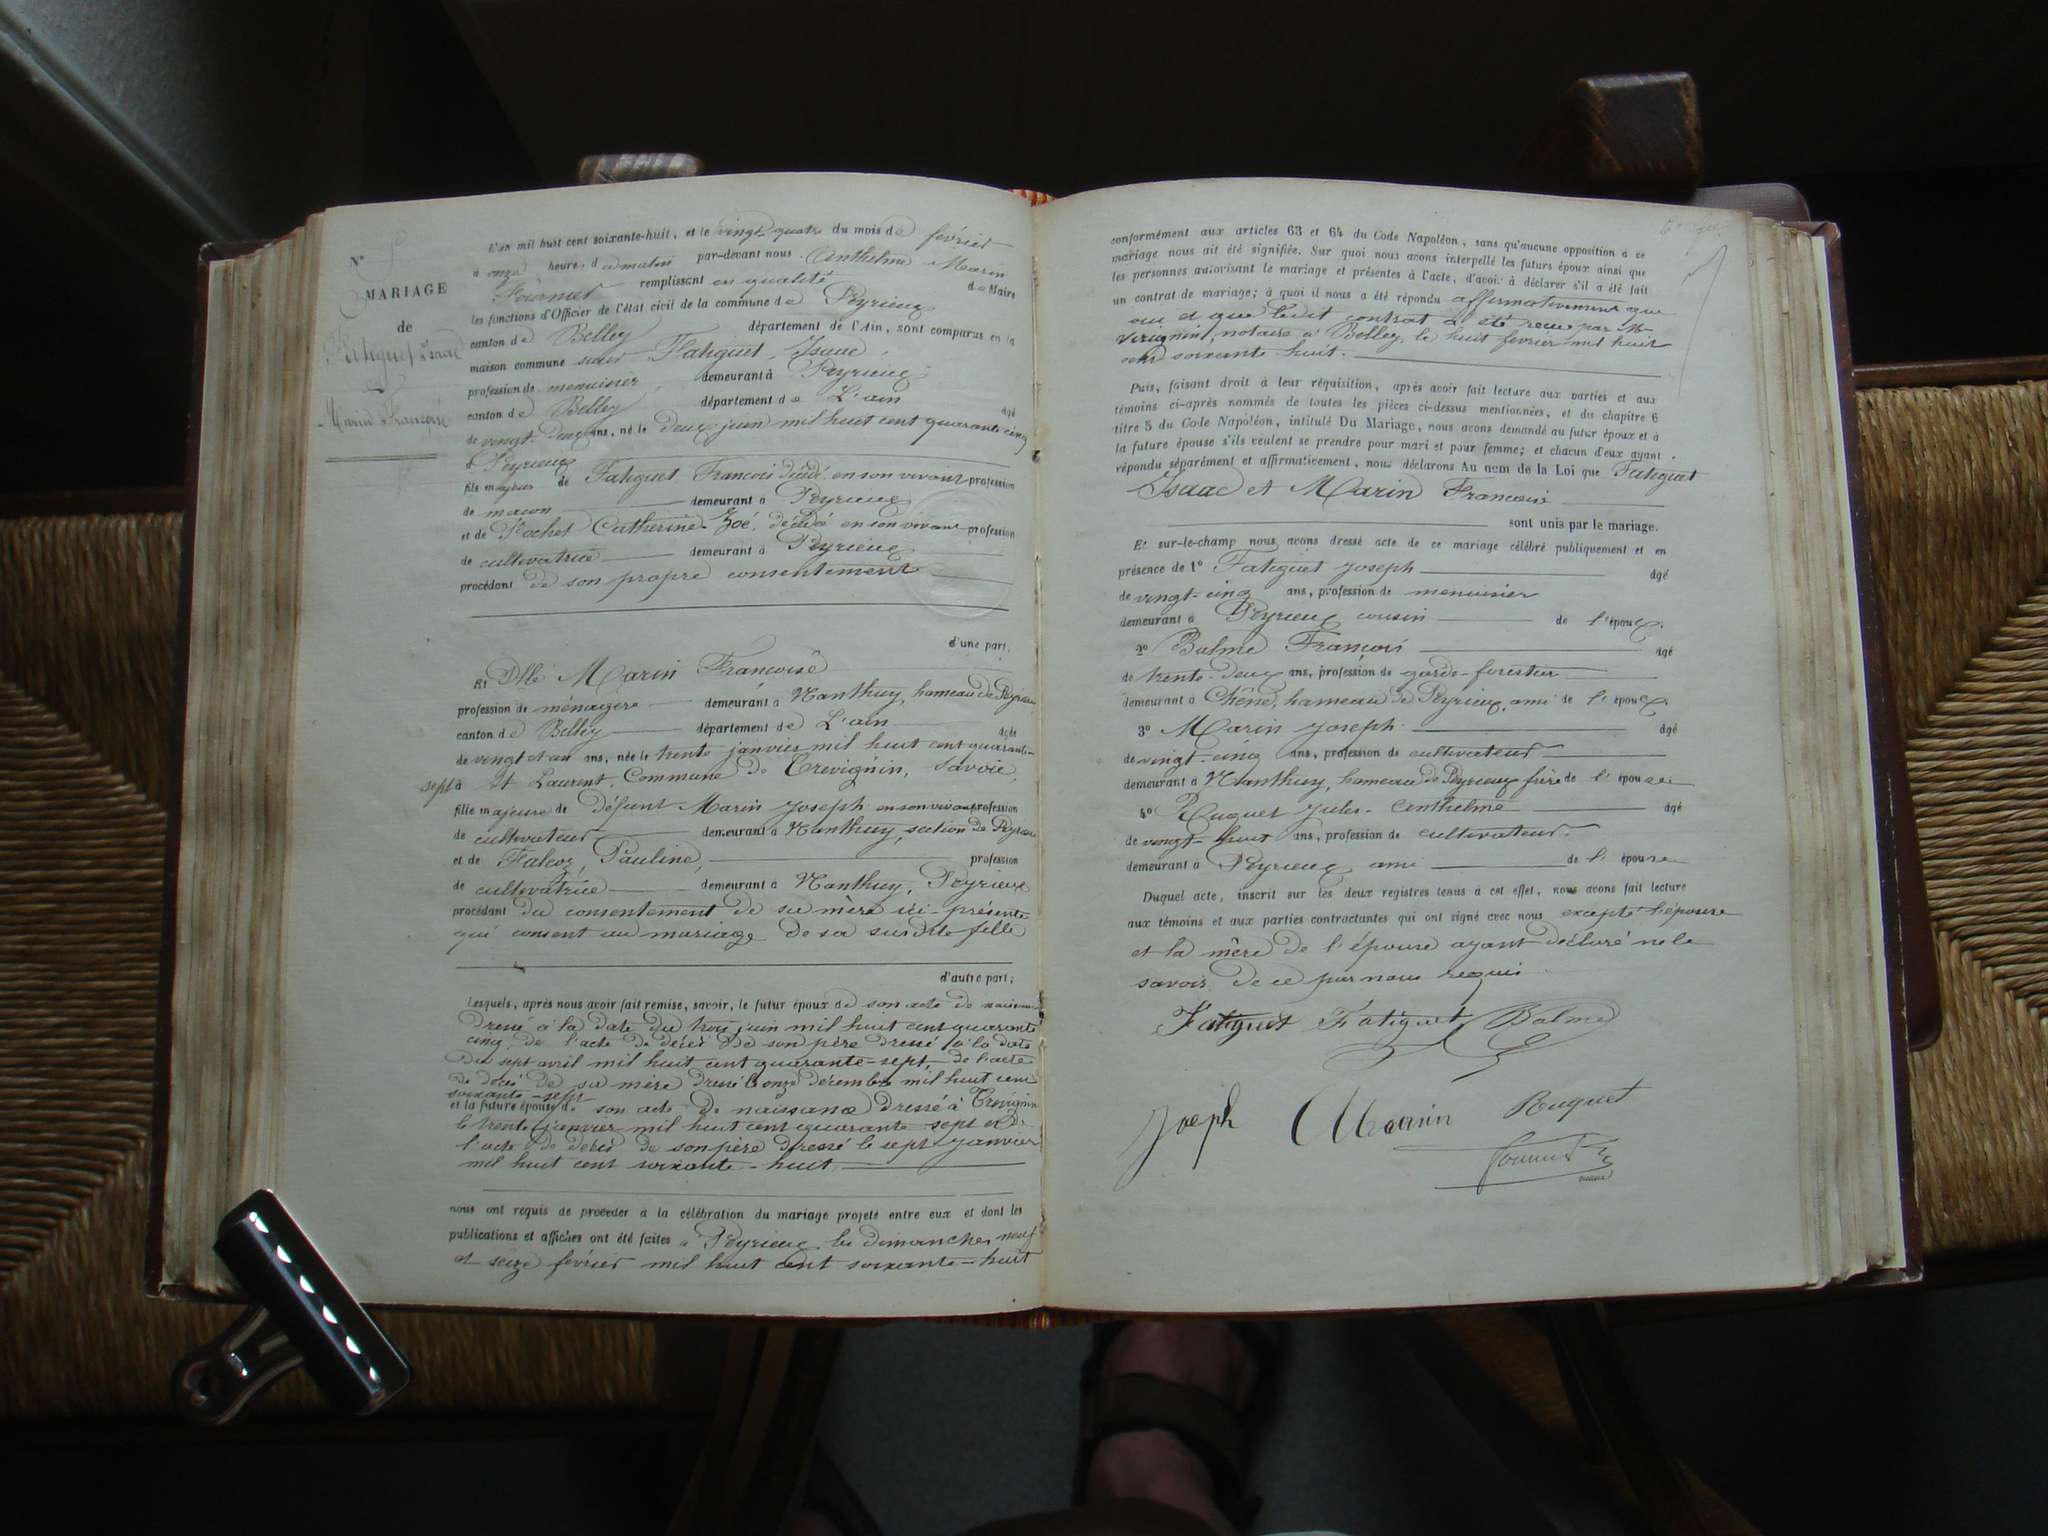 N°
MARIAGE
de
Fatiguet Isaac
et
Marin Françoise
L'an mil huit cent soixante-huit, et le vingt quatre du mois de février
à onze heures du matin par-devant nous Anthelme Marin
Fournier remplissant en qualité de Maire
les fonctions d'Officier de l'état civil de la commune de Peyrieux
canton de Belley département de l'Ain, sont comparus en la
maison commune sieur Fatiguet Isaac,
profession de menuisier, demeurant à Peyrieux
canton de Belley département de L'ain âgé
de vingt-deux ans, né le deux juin mil huit cent quarante cinq
à Peyrieux
fils majeur de Fatiguet François décédé, en son vivant profession
de maçon demeurant à Peyrieux
et de Rochet Catherine Zoé, décédée en son vivant profession
de cultivatrice demeurant à Peyrieux
procédant de son propre consentement
d'une part,
Et Dlle Marin Françoise
profession de ménagère demeurant à Nanthuy, hameau de Peyrieux
canton de Belley département de L'ain âgée
de vingt et un ans, née le trente janvier mil huit cent quarante-
sept à St Laurent, Commune de Trevignin, Savoie,
fille majeure de Défunt Marin Joseph en son vivant profession
de cultivateur demeurant à Nanthuy, section de Peyrieux
et de Falcoz, Pauline, profession
de cultivatrice demeurant à Nanthuy, Peyrieux
procédant du consentement de sa mère ici-présente
qui consent au mariage de sa susdite fille
d'autre part;
Lesquels, après nous avoir fait remise, savoir, le futur époux de son acte de naissance
dressé à la date du trois juin mil huit cent quarante
cinq, de l'acte de décès de son père dressé à la date
du sept avril mil huit cent quarante-sept, de l'acte
de décès de sa mère dressé le onze décembre mil huit cent
soixante-sept
et la future épouse de son acte de naissance dressé à Trevignin
le trente janvier mil huit cent quarante sept et de
l'acte de décès de son père dressé le sept janvier
mil huit cent soixante-huit
nous ont requis de procéder à la célébration du mariage projeté entre eux et dont les
publications et affiches ont été faites à Peyrieux les dimanches neuf
et seize février mil huit cent soixante-huit
conformément aux articles 63 et 64 du Code Napoléon, sans qu'aucune opposition à ce
mariage nous ait été signifiée. Sur quoi nous avons interpellé les futurs époux ainsi que
les personnes autorisant le mariage et présentes à l'acte, d'avoir à déclarer s'il a été fait
un contrat de mariage; à quoi il nous a été répondu affirmativement que
oui et que ledit contrat a été reçu par Me
notaire à Belley, le huit février mil huit
cent soixante huit.
Puis, faisant droit à leur réquisition, après avoir fait lecture aux parties et aux
témoins ci-après nommés de toutes les pièces ci-dessus mentionnées, et du chapitre 6
titre 5 du Code Napoléon, intitulé Du Mariage, nous avons demandé au futur époux et à
la future épouse s'ils veulent se prendre pour mari et pour femme; et chacun d'eux ayant
répondu séparément et affirmativement, nous déclarons Au nom de la Loi que Fatiguet
Isaac et Marin Françoise
sont unis par le mariage.
Et sur-le-champ nous avons dressé acte de ce mariage célébré publiquement et en
présence de 1° Fatiguet Joseph âgé
de vingt-cinq ans, profession de menuisier
demeurant à Peyrieux cousin de l'époux.
2° Balme François âgé
de trente-deux ans, profession de garde-forestier
demeurant à Chêne, hameau de Peyrieux, ami de l'époux.
3° Marin Joseph âgé
de vingt-cinq ans, profession de cultivateur
demeurant à Nanthuy, hameau de Peyrieux frère de l'épouse
4° Ruguet Jules-Anthelme âgé
de vingt-huit ans, profession de cultivateur
demeurant à Peyrieux ami de l'épouse
Duquel acte, inscrit sur les deux registres tenus à cet effet, nous avons fait lecture
aux témoins et aux parties contractantes qui ont signé avec nous excepté l'épouse
et la mère de l'épouse ayant déclaré ne le
savoir de ce par nous requis.
Fatiguet Fatiguet Balme
Joseph Marin Ruguet
Fournier
maire